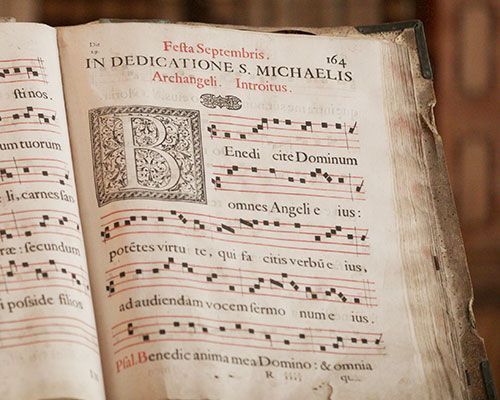 sti nos.
tuorum
li, carnes san
ræ: secundum
posside filios
Die 29.
Festa Septembris. 164
IN DEDICATIONE S. MICHAELIS
Archangeli. Introitus.
B Enedi cite Dominum
omnes Angeli e ius:
potētes virtu te, qui fa citis verbū e ius,
ad audiendam vocem sermo num e ius.
Psal. Benedic anima mea Domino: & omnia
R